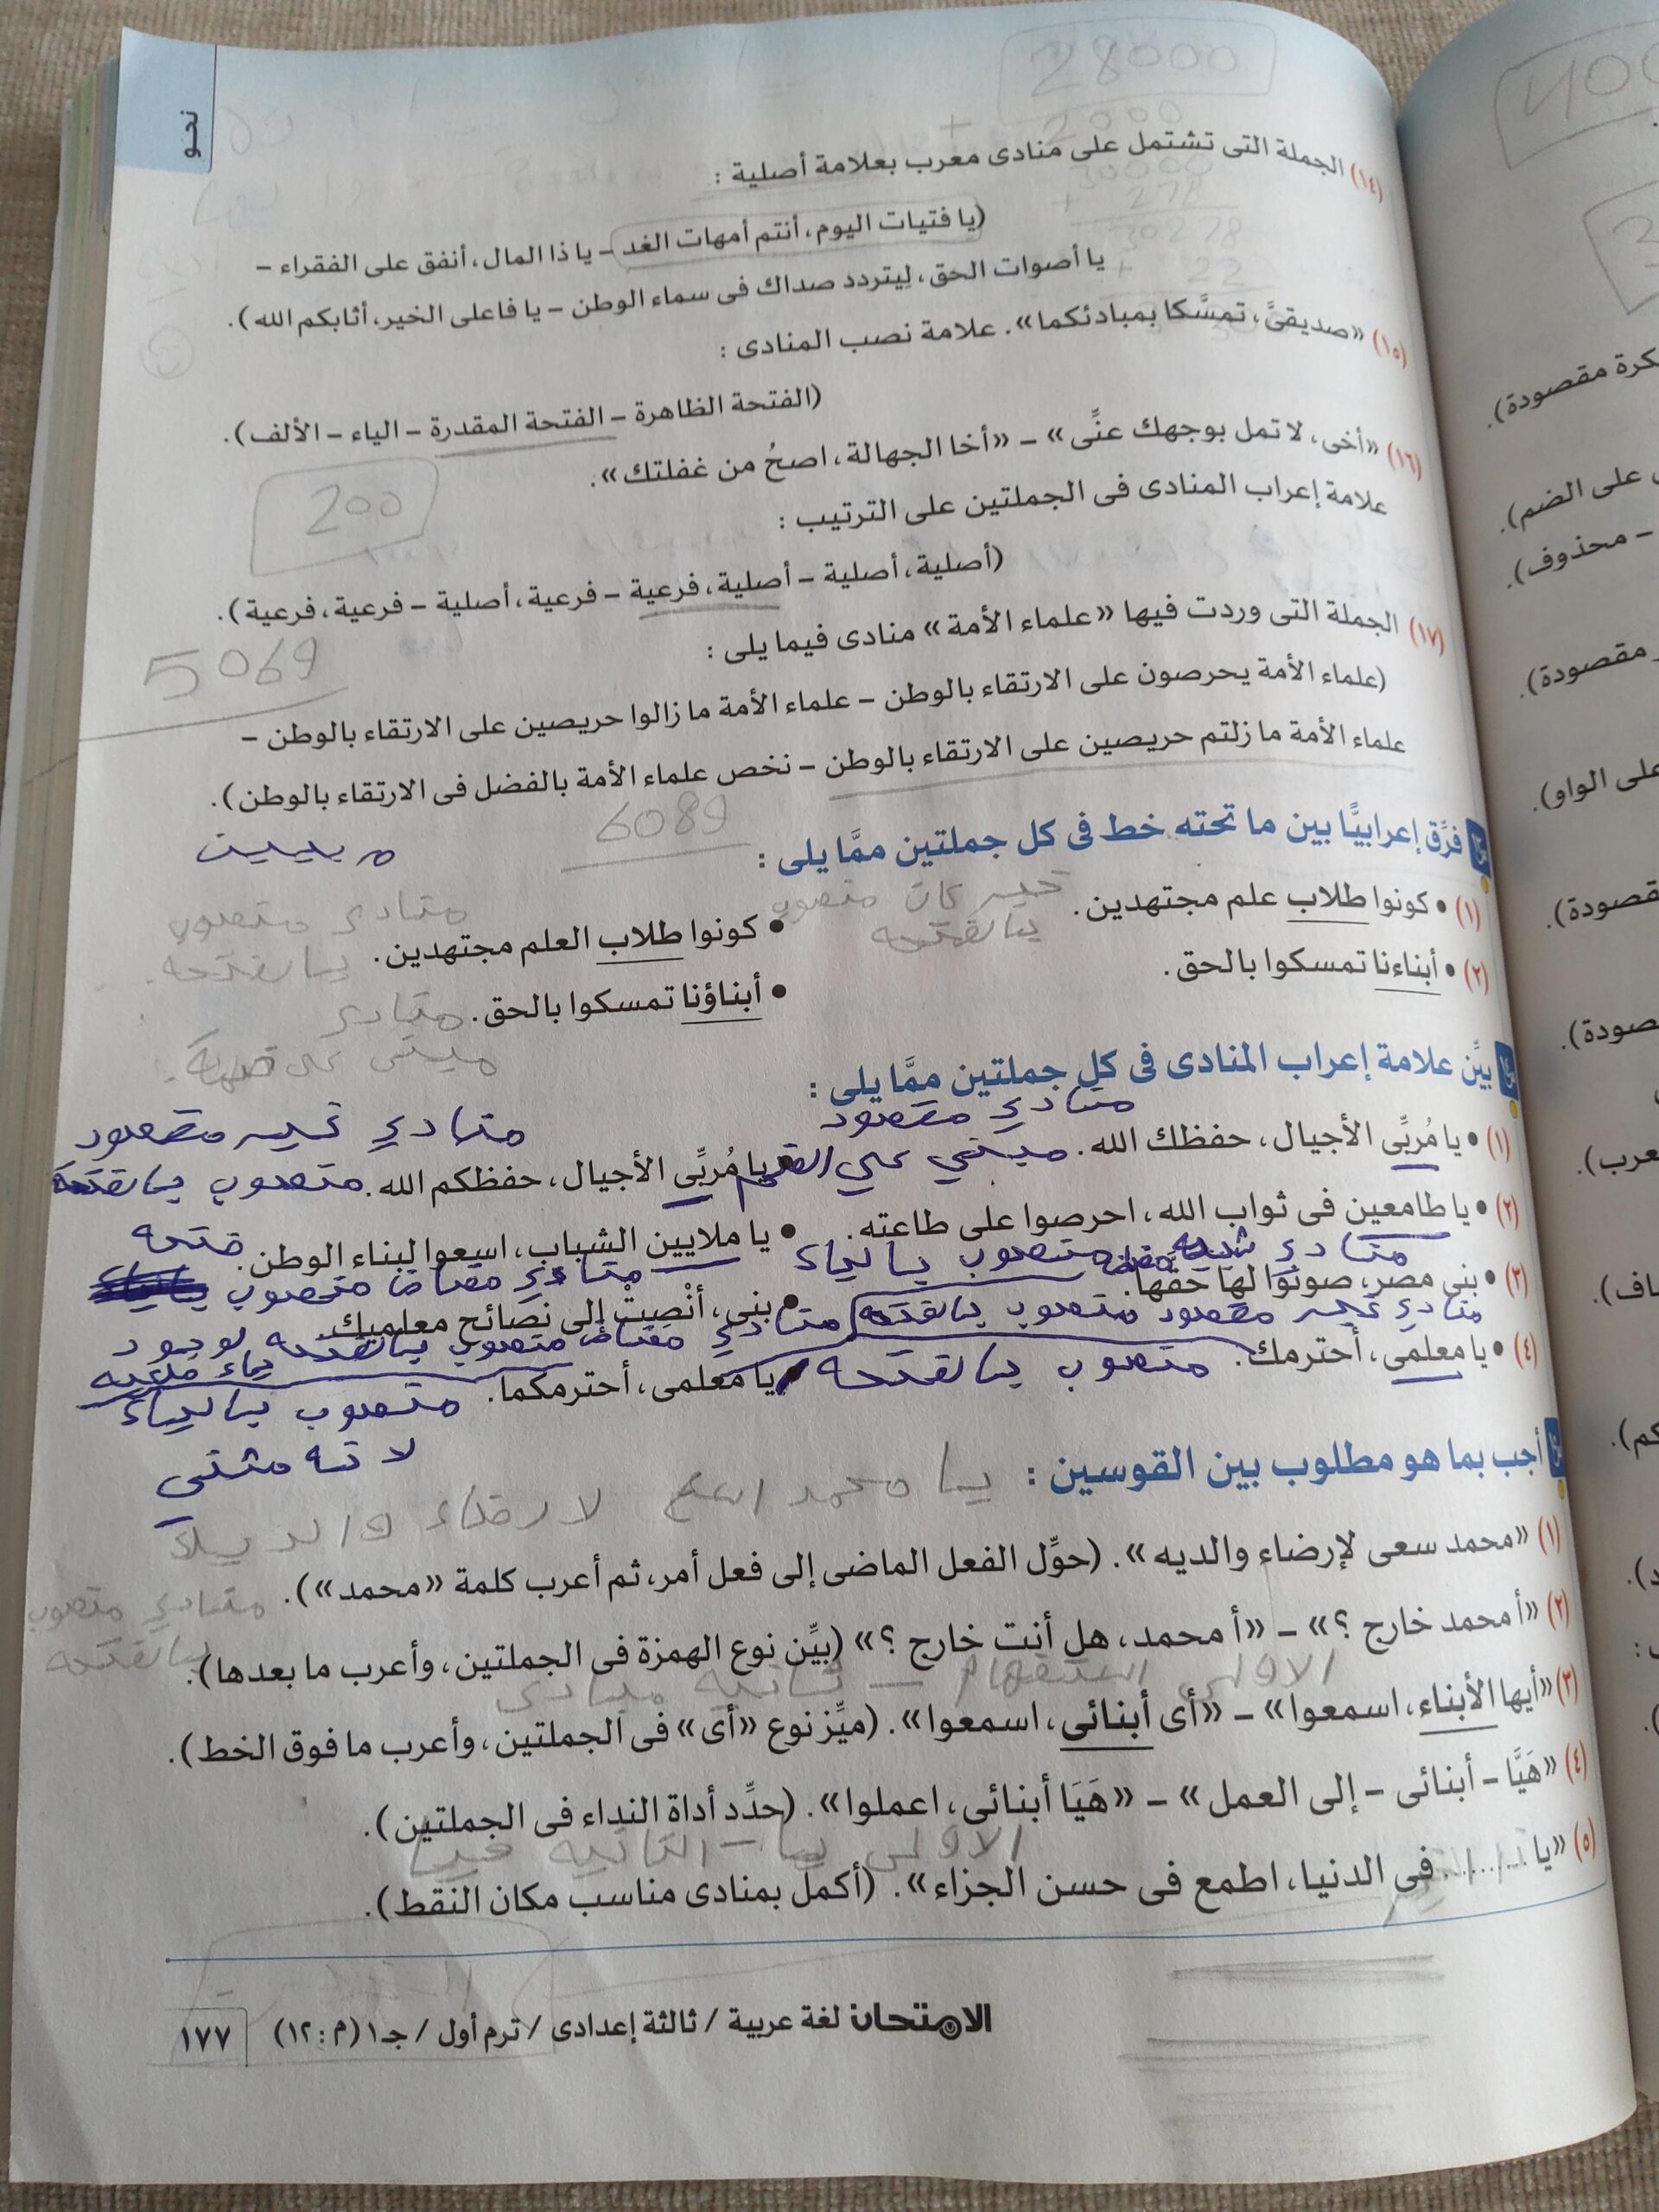 نحو
28000
2000
+
30000
278
+
30278
22
+
(١٤) الجملة التى تشتمل على منادى معرب بعلامة أصلية :
(يا فتيات اليوم، أنتم أمهات الغد – يا ذا المال، أنفق على الفقراء –
يا أصوات الحق، لِيتردد صداك فى سماء الوطن – يا فاعلى الخير، أثابكم الله).
(١٥) «صديقىَّ، تمسَّكا بمبادئكما». علامة نصب المنادى :
(الفتحة الظاهرة – الفتحة المقدرة – الياء – الألف).
(١٦) «أخى، لا تمل بوجهك عنِّى» – «أخا الجهالة، اصحُ من غفلتك».
علامة إعراب المنادى فى الجملتين على الترتيب :
200
(أصلية، أصلية – أصلية، فرعية – فرعية، أصلية – فرعية، فرعية).
(١٧) الجملة التى وردت فيها «علماء الأمة» منادى فيما يلى :
5069
(علماء الأمة يحرصون على الارتقاء بالوطن – علماء الأمة ما زالوا حريصين على الارتقاء بالوطن –
علماء الأمة ما زلتم حريصين على الارتقاء بالوطن – نخص علماء الأمة بالفضل فى الارتقاء بالوطن).
6089
فرِّق إعرابيًّا بين ما تحته خط فى كل جملتين ممَّا يلى :
(١) • كونوا طلاب علم مجتهدين. خبر كان منصوب بالفتحه
• كونوا طلاب العلم مجتهدين. منادى منصوب بالفتحه
(٢) • أبناءنا تمسكوا بالحق.
• أبناؤنا تمسكوا بالحق. منادى
مبنى على
بيِّن علامة إعراب المنادى فى كل جملتين ممَّا يلى :
(١) • يا مُربِّى الأجيال، حفظك الله. منادي مقصود مبني علي
• يا مُربِّى الأجيال، حفظكم الله. منادي غير مقصود منصوب بالفتحة
(٢) • يا طامعين فى ثواب الله، احرصوا على طاعته. منادي شبيه منصوب بالياء
• يا ملايين الشباب، اسعوا لبناء الوطن. منادي مضاف منصوب فتحه
(٣) • بنى مصر، صونوا لها حقها. منادي غير مقصود منصوب بالفتحه
• بنى، أنْصِتْ إلى نصائح معلميك. منادي مضاف منصوب بالفتحه لوجود ياء
(٤) • يا معلمى، أحترمك. منصوب بالفتحه
• يا معلمى، أحترمكما. منصوب بالياء
لانه مثني
أجب بما هو مطلوب بين القوسين :
يا محمد اسع لارضاء والديك
(١) «محمد سعى لإرضاء والديه». (حوِّل الفعل الماضى إلى فعل أمر، ثم أعرب كلمة «محمد»).
منادي منصوب بالفتحه
(٢) «أ محمد خارج ؟» – «أ محمد، هل أنت خارج ؟» (بيِّن نوع الهمزة فى الجملتين، وأعرب ما بعدها).
الاولى استفهام – ثانيه منادى
(٣) «أيها الأبناء، اسمعوا» – «أى أبنائى، اسمعوا». (ميِّز نوع «أى» فى الجملتين، وأعرب ما فوق الخط).
(٤) «هَيَّا – أبنائى – إلى العمل» – «هَيَا أبنائى، اعملوا». (حدِّد أداة النداء فى الجملتين).
الاولى يا – الثانيه هيا
(٥) «يا ........ فى الدنيا، اطمع فى حسن الجزاء». (أكمل بمنادى مناسب مكان النقط).
الامتحان لغة عربية / ثالثة إعدادى / ترم أول / جـ ١ (م : ١٢)
١٧٧
كرة مقصودة).
على الضم).
– محذوف).
مقصودة).
على الواو).
قصودة).
صودة).
عرب).
اف).
كم).